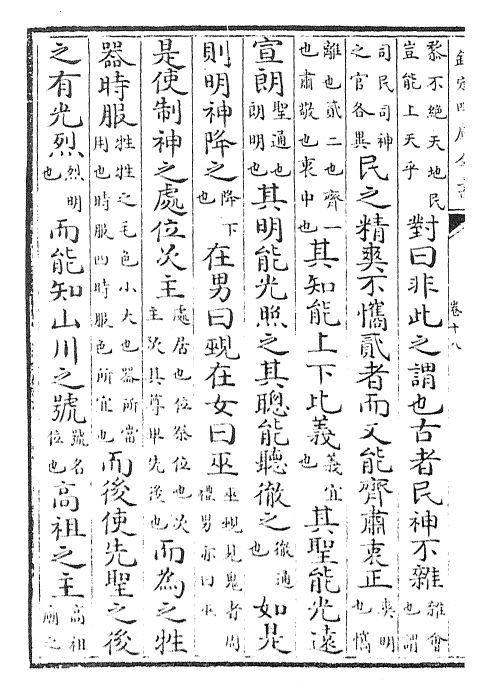 欽定四庫全書
卷十八
黎不絶天地民豈能上天乎
對曰非此之謂也古者民神不雜雜會也謂司民司神之官各異
民之精爽不㩦貳者而又能齊肅衷正爽明也㩦離也貳二也齊一也肅敬也衷中也
其知能上下比義義宜也
其聖能光遠宣朗聖通也朗明也
其明能光照之其聰能聽徹之徹通也
如是則明神降之降下也
在男曰覡在女曰巫巫覡見鬼者周禮男亦曰巫
是使制神之處位次主處居也位祭位也次主次其尊卑先後也
而為之牲器時服牲牲之毛色小大也器所當用也時服四時服色所宜也
而後使先聖之後之有光烈烈明也
而能知山川之號號名位也
高祖之主高祖廟之